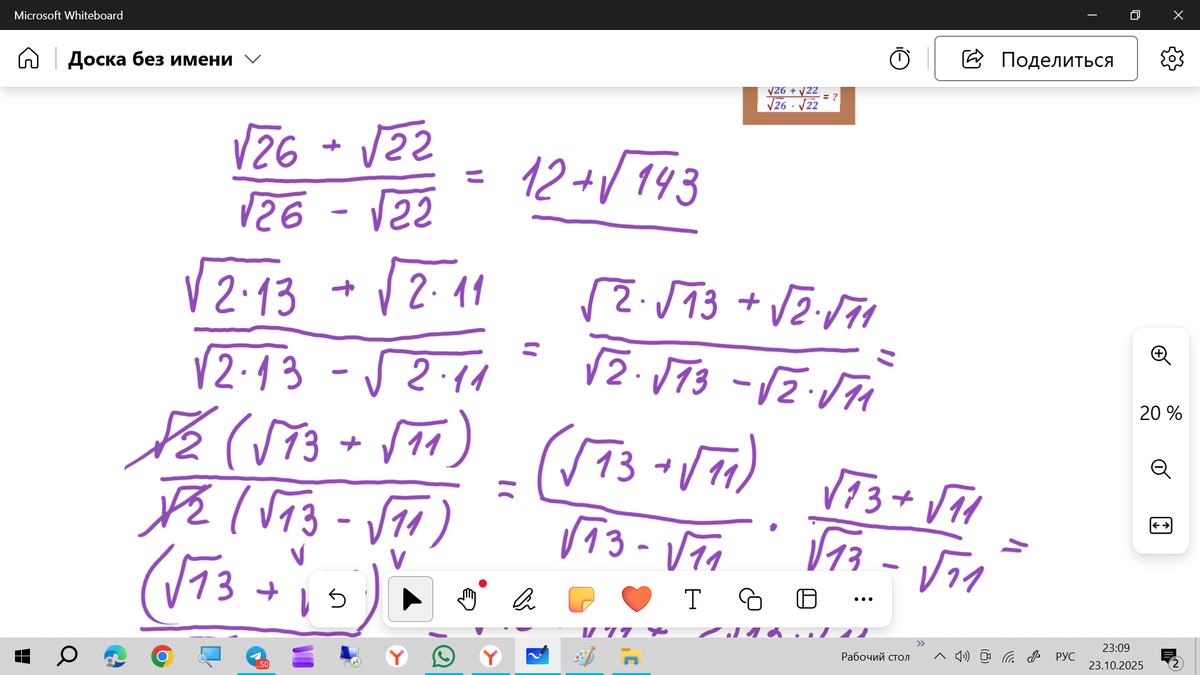 Microsoft Whiteboard
Доска без имени
Поделиться
√26 + √22 / √26 - √22 = ?
√26 + √22 / √26 - √22 = 12+√143
√2·13 + √2·11 / √2·13 - √2·11 = √2·√13 + √2·√11 / √2·√13 - √2·√11 =
√2 (√13 + √11) / √2 (√13 - √11) = (√13 + √11) / √13 - √11 · √13 + √11 / √13 - √11 =
(√13 +
20 %
T
50
Рабочий стол
РУС
23:09
23.10.2025
2